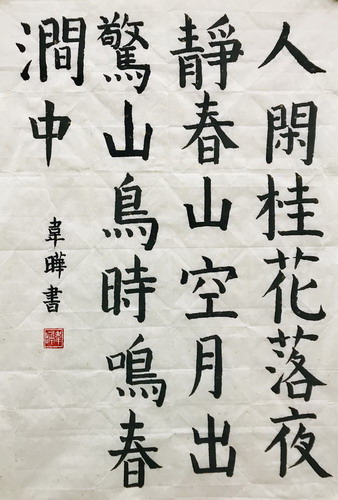 人閑桂花落夜
靜春山空月出
驚山鳥時鳴春
澗中
韋曄書